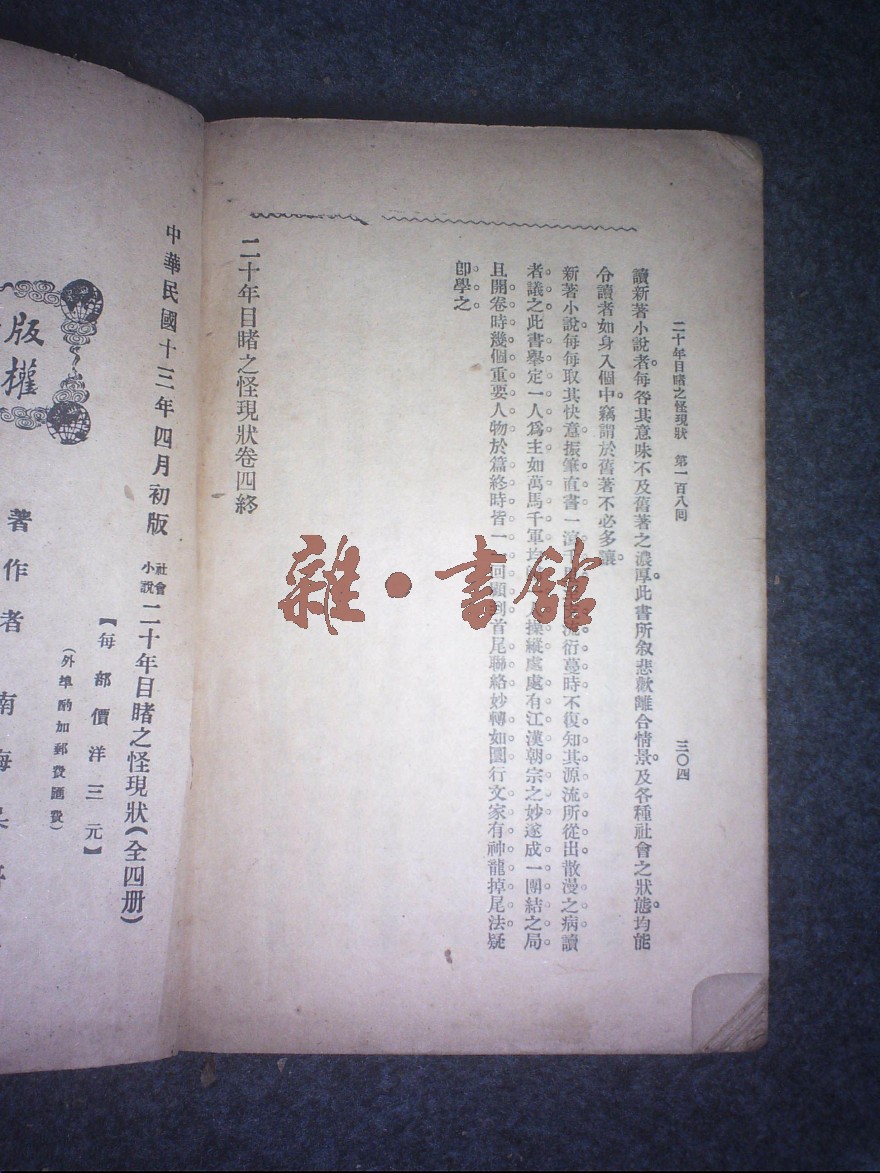 二十年目睹之怪現狀　第一百八回　三〇四
讀新著小說者每咎其意味不及舊著之濃厚此書所叙悲歡離合情景及各種社會之狀態均能
令讀者如身入個中竊謂於舊著不必多讓
新著小說每每取其快意振筆直書一瀉千
衍蔓時不復知其源流所從出散漫之病讀
者議之此書舉定一人爲主如萬馬千軍均
操縱處處有江漢朝宗之妙遂成一團結之局
且開卷時幾個重要人物於篇終時皆一一回顧到首尾聯絡妙轉如圜行文家有神龍掉尾法疑
卽學之
二十年目睹之怪現狀卷四終
雜·書館
中華民國十三年四月初版
社會小說 二十年目睹之怪現狀(全四册)
【每部價洋三元】
(外埠酌加郵費匯費)
版權
著作者 南海